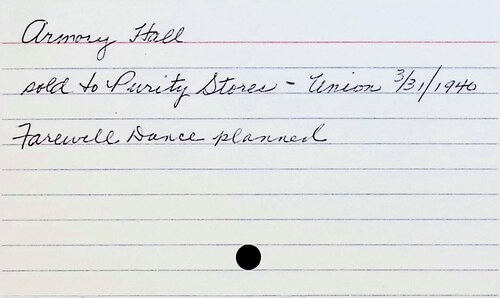 Armory Hall
sold to Purity Stores - Union 3/31/1940
Farewell Dance planned